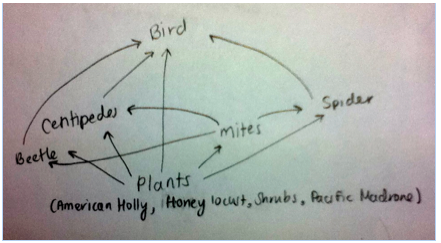 Bird
Centipedes
Spider
mites
Beetle
Plants
(American Holly, Honey locust, Shrubs, Pacific Madrone)